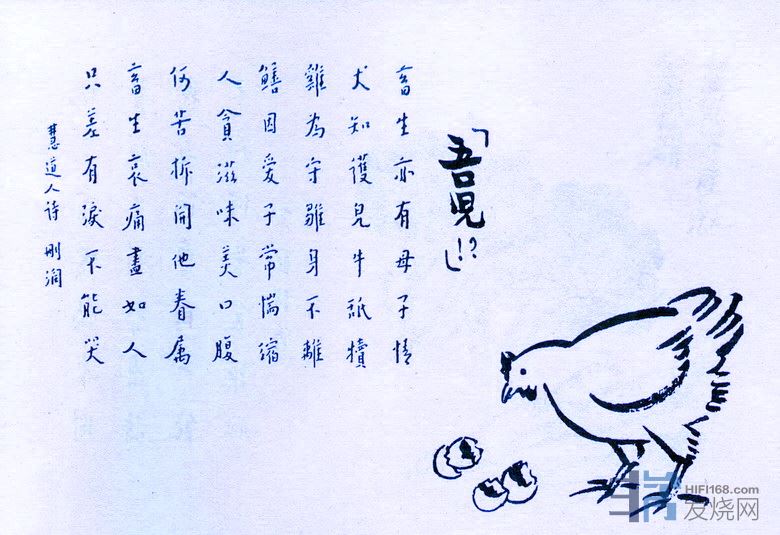 「吾兒」!?
畜生亦有母子情
犬知護兒牛舐犢
雞為守雛身不離
鱔因愛子常惴縮
人貪滋味美口腹
何苦拆開他眷属
畜生哀痛盡如人
只差有淚不能哭
慧道人诗 刚润
HIFI168.com
发烧网